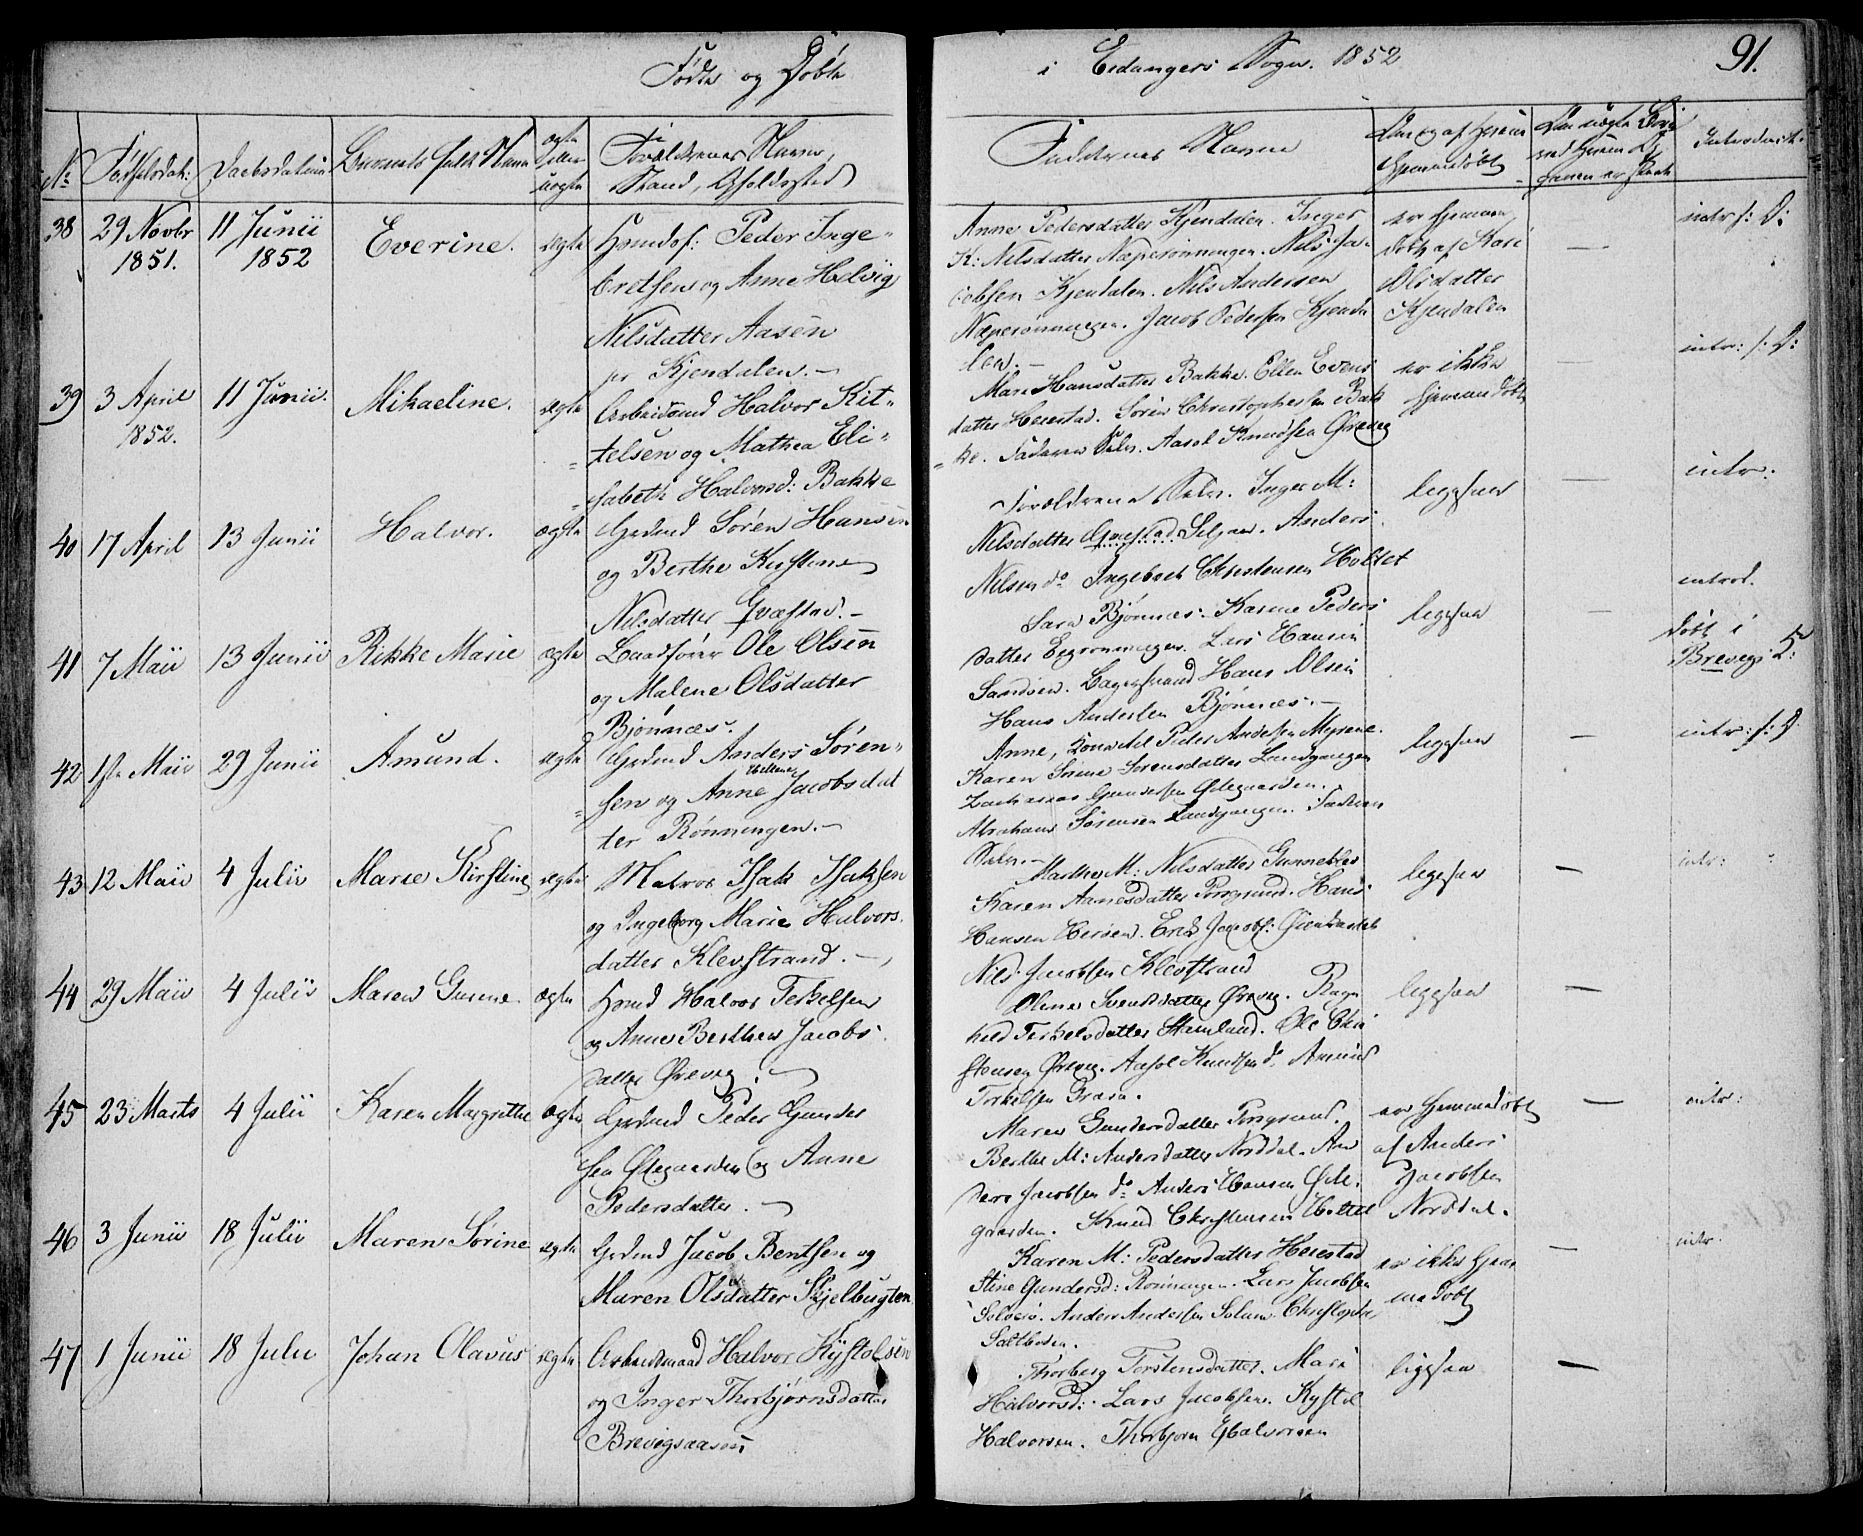 Fødte og Døbte
i Eidangers Sogn. 1852
91.
No
Fødselsdat:
Daabsdatum
Barnets fulde Navn
ægte
eller
uægte
Forældrenes Navne,
Stand, Opholdssted
Faddernes Navne
Introduct.
38
29 Novbr
1851.
11 Junii
1852
Everine.
ægte
Huusdof: Peder Inge-
bretsen og Anne Helvig
Nilsdatter Aasen
pr Kjendalen. -
Anne Pedersdatter Kjendalen. Inger
K: Nilsdatter Næperønningen. Nils Ja-
cobsen Kjendalen. Nils Andersen
Næperønningen. Jacob Pedersen Kjenda
len. -
er hjemme
døbt af Kari
Olsdatter
Kjendalen
intr: f: D:
39
3 April
1852.
11 Junii.
Mikaeline.
ægte
Arbeidsmd Halvor Kit-
telsen og Mathea Eli-
sabeth Halvorsd: Bakke
Maren Hansdatter Bakke. Ellen Evens
datter Heiestad. Søren Christophersen Bak
ke. Faderen Selv. Aasol Knudsen Ørevig
er ikke
hjemmedøbt
intr: f: D:
40
17 April
13 Junii
Halvor.
ægte
Grdmd Søren Hansen
og Berthe Kirstine
Nilsdatter Gvæstad. -
Forældrene Selv. Inger M:
Nilsdatter Gvæstad. Anders
Nilsen do Ingebret Christensen Holtet
ligesaa
intr:
41
7 Maii
13 Junii
Rikke Marie
ægte
Baadfører Ole Olsen
og Malene Olsdatter
Bjønnæs.
Sara Bjønnæs. Karine Peders
datter Eegrønningen. Lars Hansen
Sandøen. Hans Olsen
Hans Andersen Bjønnæs. -
ligesaa
introd.
døbt i
Brevigs K:
42
1ste Maii
29 Junii
Amund.
ægte
Grdmd Anders Søren-
sen og Anne Jacobsdat
ter Rønningen. -
Anne, Kone til Peder Andersen Myrene.
Karen Sørine Sørensdatter Landgangen
Zacharias Gundersen Ødegaarden.
Abraham Sørensen Landgangen. Faderen
Selv. -
ligesaa
intr: f: D
43
12 Maii
4 Julii
Maren Kirstine
ægte
Matros Isak Isaksen
og Ingeborg Marie Halvors
datter Klevstrand. -
Marthe M: Nilsdatter Gunneklev
Karen Aanesdatter Porsgrund. Hans
Hansen Herøen. Erik Jacobs:
Nils Jacobsen Klevstrand
ligesaa
intr:
44
29 Maii
4 Julii
Maren Gurine.
ægte
Huusmd Halvor Terkelsen
og Anne Berthea Jacobs
datter Ørevig. -
Oline Svensdatter Ørevig. Ragn
hild Terkelsdatter Stamland. Ole Chri
stensen Ørevig. Aasol Knudsen do. Amund
Torkelsen Grava.
ligesaa
45
23 Marts
4 Julii
Karen Margrethe
ægte
Grdmd Peder Gunder
sen Ødegaarden og Anne
Pedersdatter. -
Maren Gundersdatter Porsgrund.
Berthe M: Andersdatter Norddal. An
ders Jacobsen do Anders Hansen Øde
gaarden. Knud Christensen Holtet
er hjemmedøbt
af Anders
Jacobsen
Norddal.
intr:
46
3 Junii
18 Julii
Maren Sørine
ægte
Grdmd Jacob Bentsen og
Maren Olsdatter Skjelbugten
Karen M: Pedersdatter Heiestad
Stine Gundersd: Rønningen. Lars Jacobsen
Anders Andersen Solum. Christopher
Saltboden.
er ikke hjem
medøbt
intr.
47
1 Junii
18 Julii
Johan Olavus
ægte
Arbeidsmand Halvor Kystolsen
og Inger Thorbjørnsdatter
Brevigsaasen
Thorberg Torstensdatter. Mari
Halvorsd: Lars Jacobsen. Kystol
Halvorsen. Thorbjørn Halvorsen
ligesaa